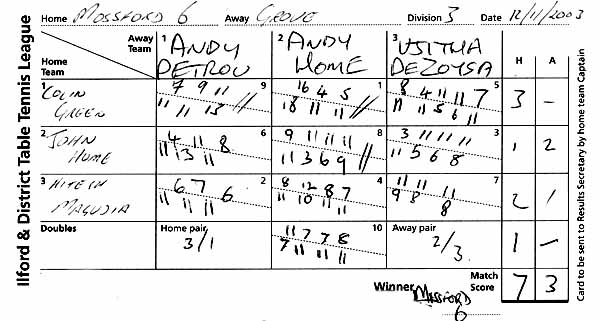 Home MOSSFORD 6 Away GROVE Division 3 Date 12/11/2003
Ilford & District Table Tennis League
Away Team
Home Team
1 ANDY PETROU
2 ANDY HOME
3 VJITHA DEZOYSA
H A
1 COLIN GREEN
7 9 11 9
11 11 13
16 4 5 1
18 11 11
8 4 11 11 7 5
11 11 5 6 11
3 –
2 JOHN HUME
4 11 8 6
11 13 11
9 11 11 11 8
11 3 6 9
3 11 11 11 3
11 5 6 8
1 2
3 HITESH MAGUDIA
6 7 6 2
11 11 11
8 12 8 7 4
11 10 11 11
11 11 11 7
9 8 8
2 1
Doubles
Home pair
3/1
11 7 7 8 10
7 11 11 11
Away pair
2/3
1 –
Winner MOSSFORD 6
Match Score
7 3
Card to be sent to Results Secretary by home team Captain